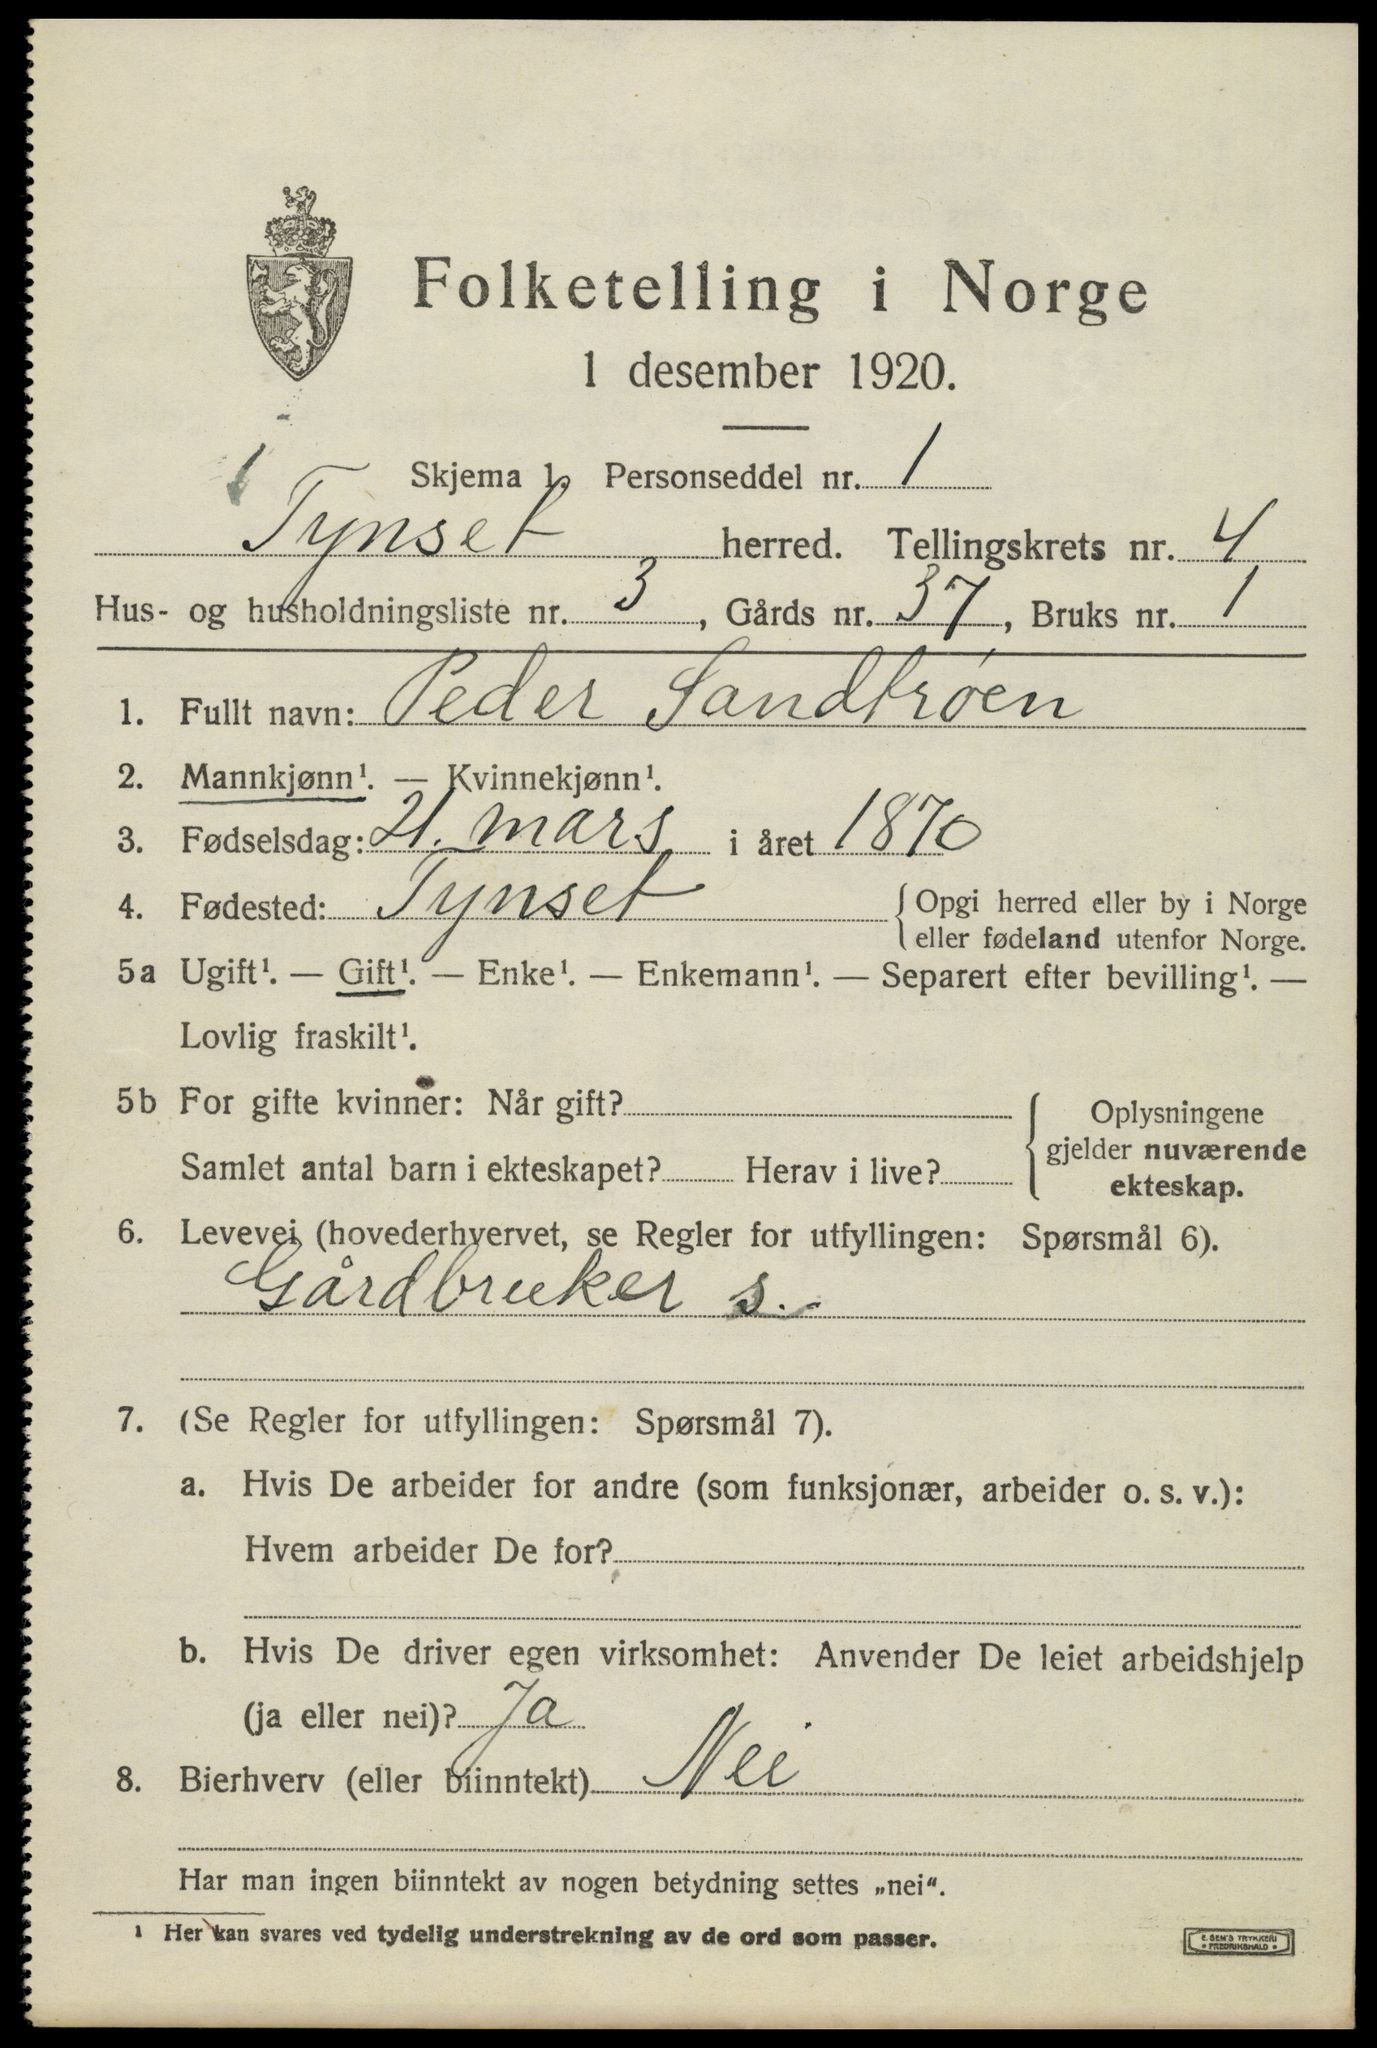 Folketelling i Norge
1 desember 1920.
Skjema 1. Personseddel nr. 1
Tynset herred. Tellingskrets nr. 4
Hus- og husholdningsliste nr. 3, Gårds nr. 37, Bruks nr. 1
1. Fullt navn: Peder Sandtrøen
2. Mannkjønn¹. — Kvinnekjønn¹.
3. Fødselsdag: 21. mars i året 1870
4. Fødested: Tynset { Opgi herred eller by i Norge
eller fødeland utenfor Norge.
5a Ugift¹. — Gift¹. — Enke¹. — Enkemann¹. — Separert efter bevilling¹. —
Lovlig fraskilt¹.
5b For gifte kvinner: Når gift?
Samlet antal barn i ekteskapet? Herav i live?
Oplysningene
gjelder nuværende
ekteskap.
6. Levevei (hovederhvervet, se Regler for utfyllingen: Spørsmål 6).
Gårdbruker s.
7. (Se Regler for utfyllingen: Spørsmål 7).
a. Hvis De arbeider for andre (som funksjonær, arbeider o. s. v.):
Hvem arbeider De for?
b. Hvis De driver egen virksomhet: Anvender De leiet arbeidshjelp
(ja eller nei)? Ja
8. Bierhverv (eller biinntekt) Nei
Har man ingen biinntekt av nogen betydning settes „nei“.
¹ Her kan svares ved tydelig understrekning av de ord som passer.
E. SEM'S TRYKKERI
• FREDRIKSHALD •